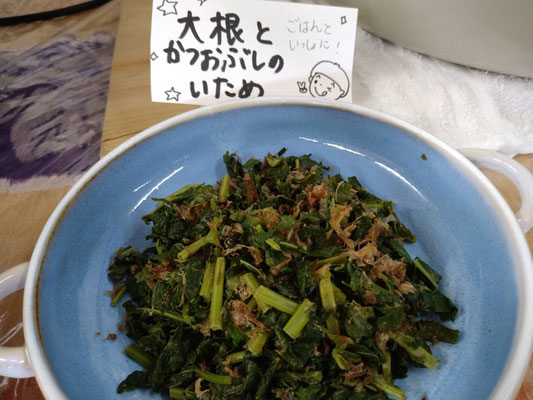 大根と
かつおぶしの
いため
ごはんと
いっしょに!